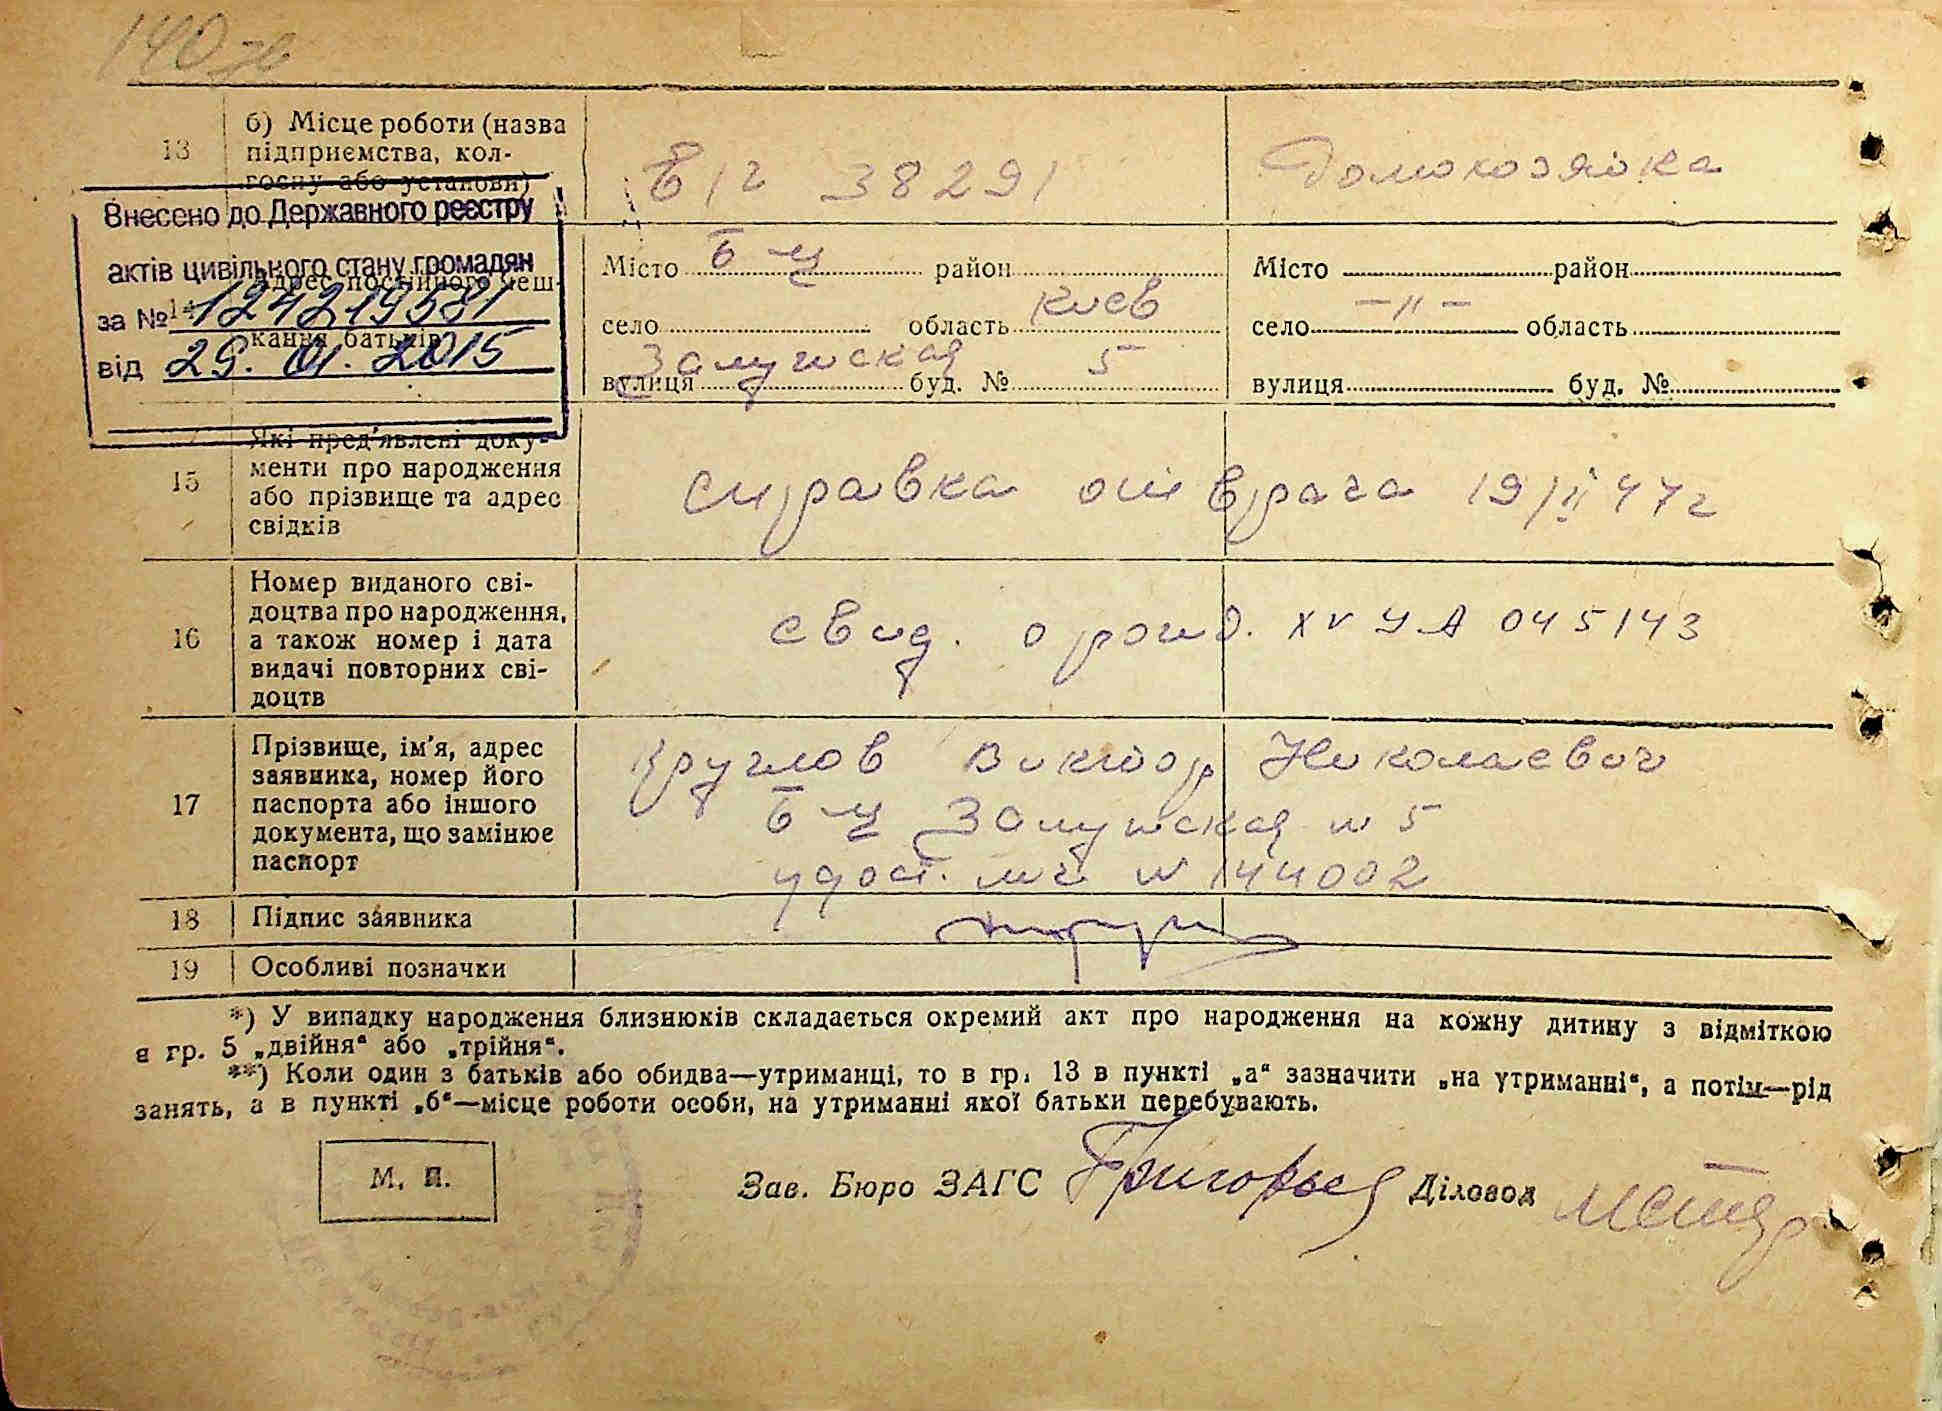 140
13
б) Місце роботи (назва
підприємства, кол-
госпу або установи)
в/г 38291
Домохозяйка
Внесено до Державного реєстру
актів цивільного стану громадян
за № 124219581
від 29.01.2015
14
Адрес постійного меш-
кання батьків
Місто Б-Ц район
село область Киев
вулиця Залужская буд. № 5
Місто район
село -"- область
вулиця буд. №
15
Які пред'явлені доку-
менти про народження
або прізвище та адрес
свідків
справка от врача 19/II 47 г
16
Номер виданого сві-
доцтва про народження,
а також номер і дата
видачі повторних сві-
доцтв
свид. о рожд. XV УА 045143
17
Прізвище, ім'я, адрес
заявника, номер його
паспорта або іншого
документа, що замінює
паспорт
Круглов Виктор Николаевич
Б-Ц Залужская № 5
удост. № 144002
18
Підпис заявника
19
Особливі позначки
*) У випадку народження близнюків складається окремий акт про народження на кожну дитину з відміткою
в гр. 5 „двійня“ або „трійня“.
**) Коли один з батьків або обидва—утриманці, то в гр. 13 в пункті „а“ зазначити „на утриманні“, а потім—рід
занять, а в пункті „б“—місце роботи особи, на утриманні якої батьки перебувають.
М. П.
Зав. Бюро ЗАГС Григорьев Діловод